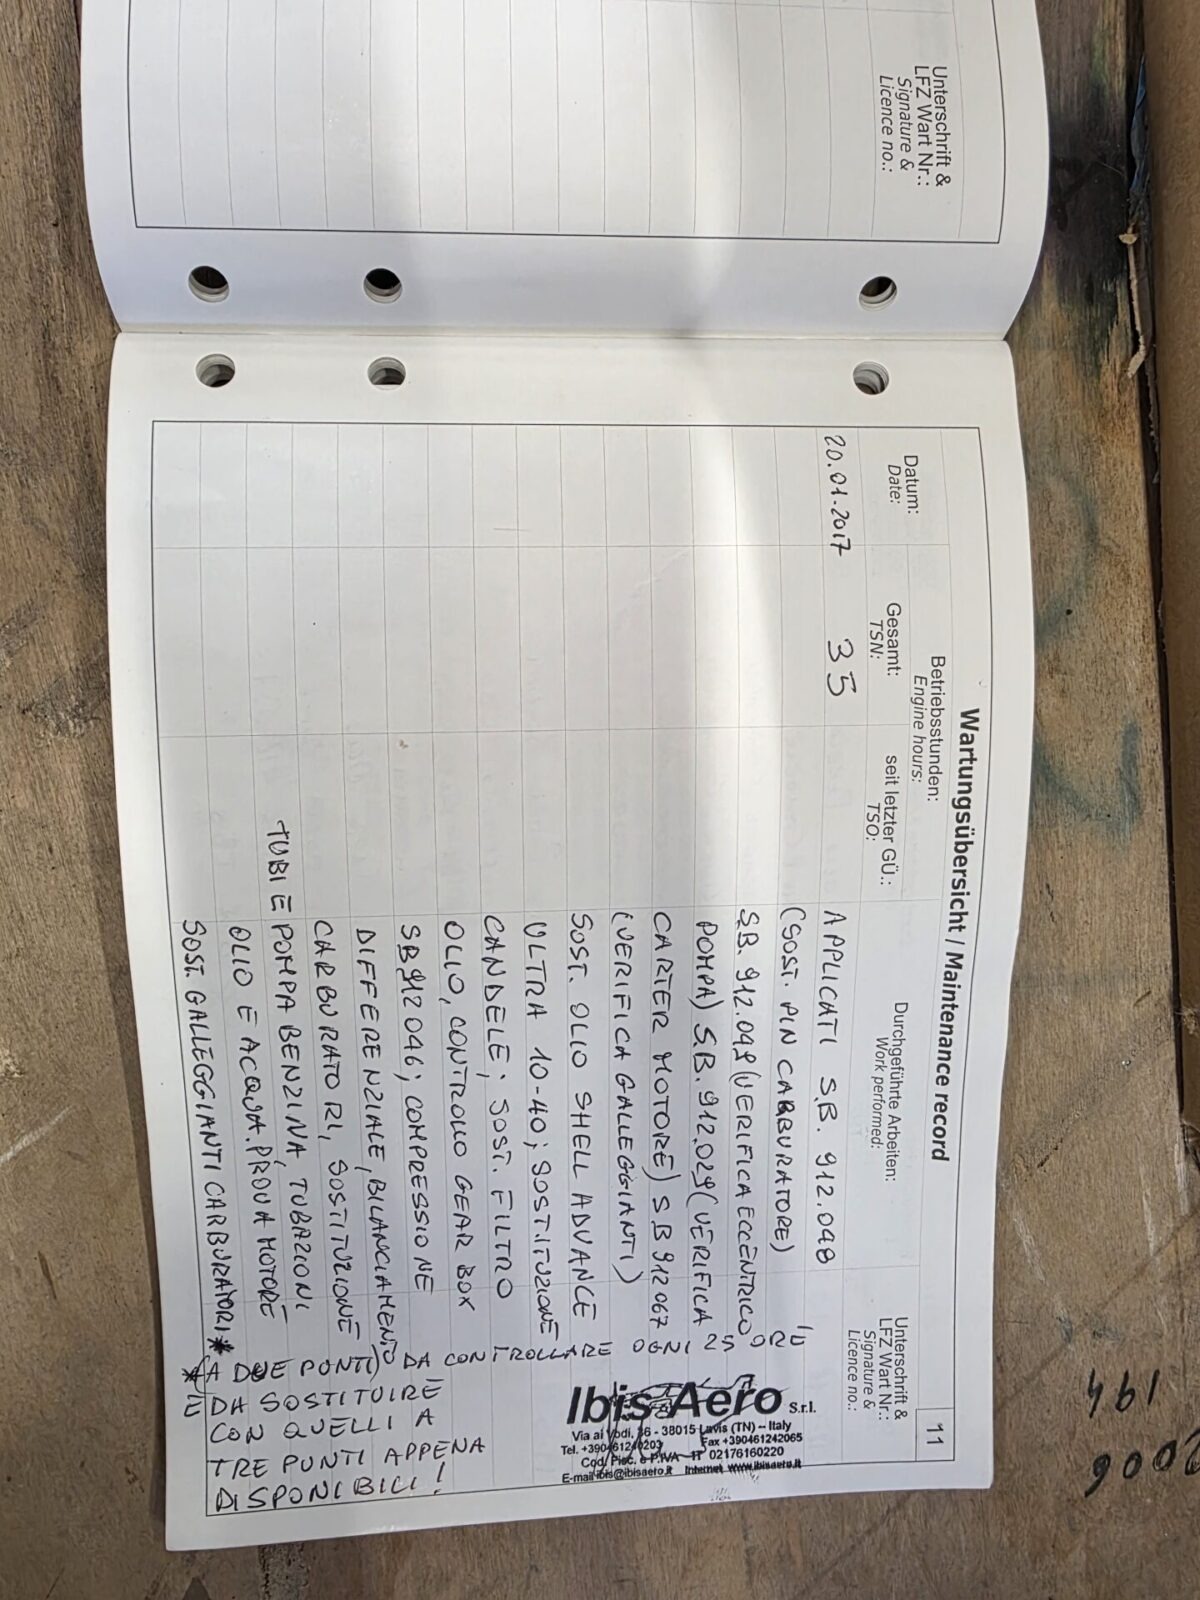 Unterschrift &
LFZ Wart Nr.:
Signature &
Licence no.:
Wartungsübersicht / Maintenance record
11
Datum:
Date:
Betriebsstunden:
Engine hours:
Gesamt:
TSN:
seit letzter GÜ.:
TSO:
Durchgeführte Arbeiten:
Work performed:
Unterschrift &
LFZ Wart Nr.:
Signature &
Licence no.:
20.01.2017 35 APPLICATI S.B. 912.098
(SOST. PIN CARBURATORE)
S.B. 912.049 (VERIFICA ECCENTRICO
POMPA) S.B. 912.029 (VERIFICA
CARTER MOTORE) SB 912 067
(VERIFICA GALLEGGIANTI)
SOST. OLIO SHELL ADVANCE
ULTRA 10-40; SOSTITUZIONE
CANDELE; SOST. FILTRO
OLIO, CONTROLLO GEAR BOX
SB 912 046; COMPRESSIONE
DIFFERENZIALE, BILANCIAMENTO
CARBURATORI, SOSTITUZIONE
TUBI E POMPA BENZINA, TUBAZIONI
OLIO E ACQUA. PROVA MOTORE
SOST. GALLEGGIANTI CARBURATORI *
*(A DUE PONTI) DA CONTROLLARE OGNI 25 ORE
E DA SOSTITUIRE
CON QUELLI A
TRE PUNTI APPENA
DISPONIBILI!
Ibis Aero S.r.l.
Via ai Vodi, 36 - 38015 Lavis (TN) – Italy
Tel. +390461240203 Fax +390461242065
Cod. Fisc. e P.IVA IT 02176160220
E-mail ibis@ibisaero.it Internet www.ibisaero.it
194
2006